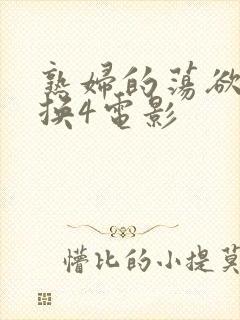 熟婦的蕩欲
換4電影
懵比的小提莫